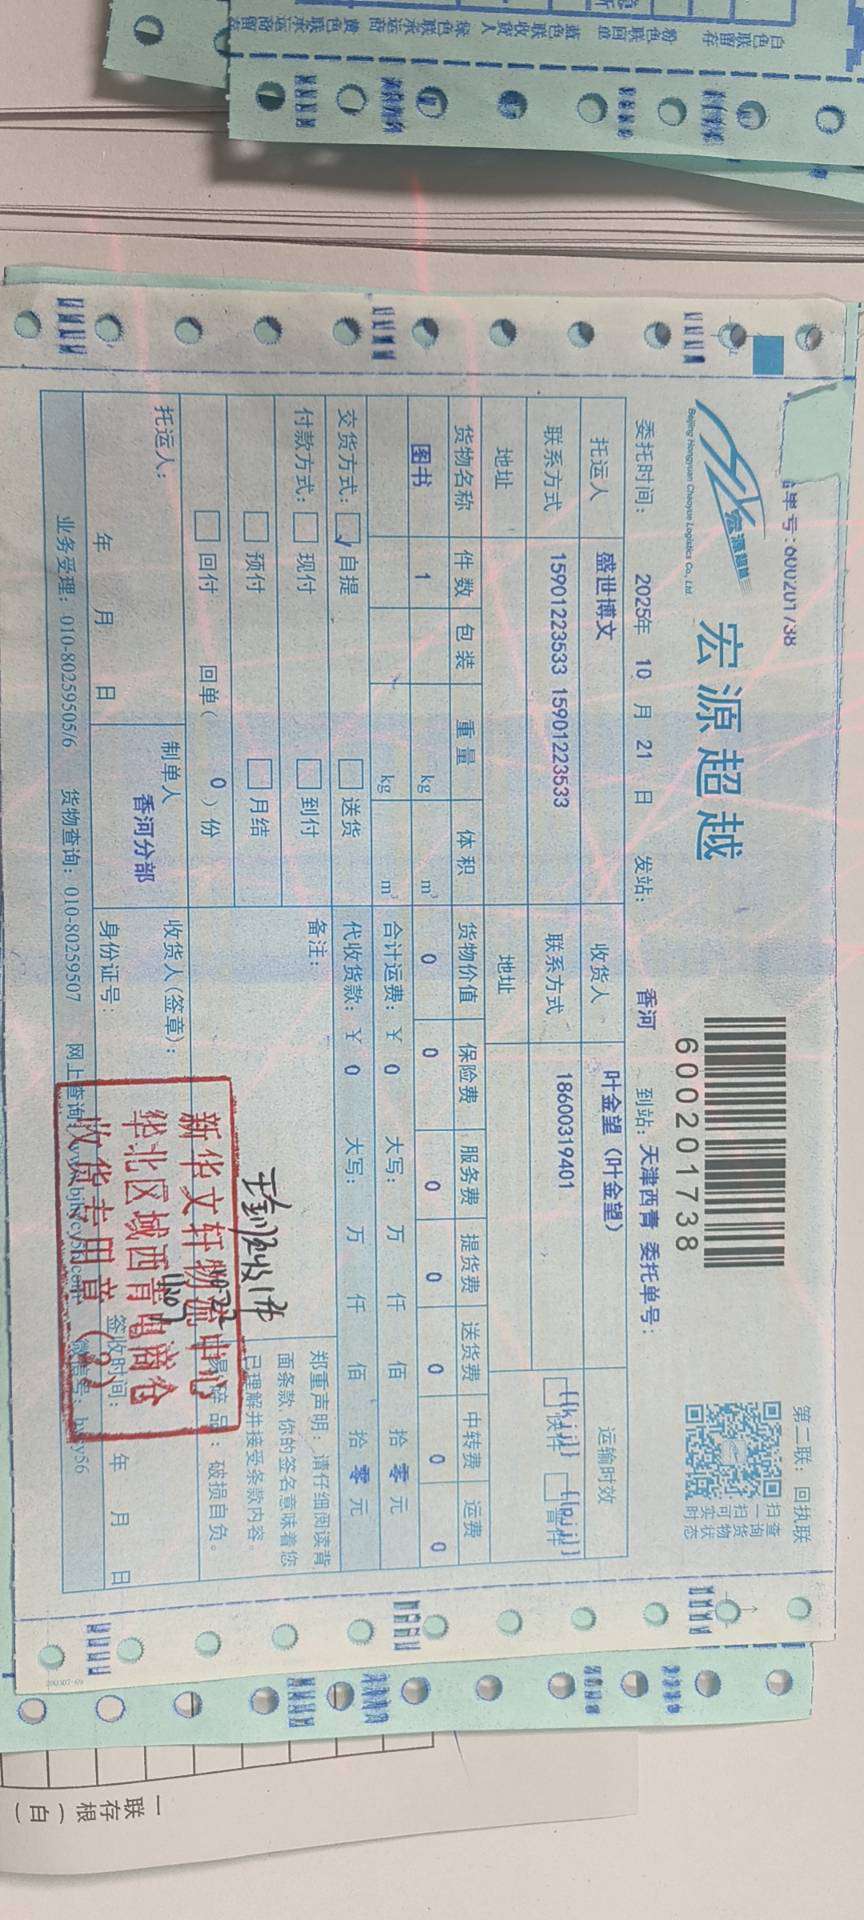 白色联 留存 粉色联 回单 蓝色联 收货人 绿色联 承运商 黄色联 承运商留存
单号:600201738
第二联：回执联
宏源超越
宏源超越
Beijing Hongyuan Chaoyue Logistics Co., Ltd.
600201738
扫一扫可实时
查询货物状态
委托时间: 2025年 10 月 21 日 发站: 香河 到站: 天津西青 委托单号:
托运人 盛世博文 收货人 叶金望（叶金望） 运输时效
联系方式 15901223533 15901223533 联系方式 18600319401
地址 地址
货物名称 件数 包装 重量 体积 货物价值 保险费 服务费 提货费 送货费 中转费 运费
图书 1 kg m³ 0 0 0 0 0 0 0
kg m³ 合计运费: ¥ 0 大写: 万 仟 佰 拾 零 元
交货方式: 自提 送货 代收货款: ¥ 0 大写: 万 仟 佰 拾 零 元
付款方式: 现付 到付 备注:
预付 月结
回付 回单( 0 ) 份
郑重声明：请仔细阅读背
面条款，你的签名意味着您
已理解并接受条款内容。
易碎品：破损自负。
托运人: 制单人 收货人(签章):
香河分部
年 月 日 身份证号: 签收时间: 年 月 日
新华文轩物流中心
华北区域西青电商仓
收货专用章
业务受理: 010-80259505/6 货物查询: 010-80259507 网上查询:
一联存根（白）